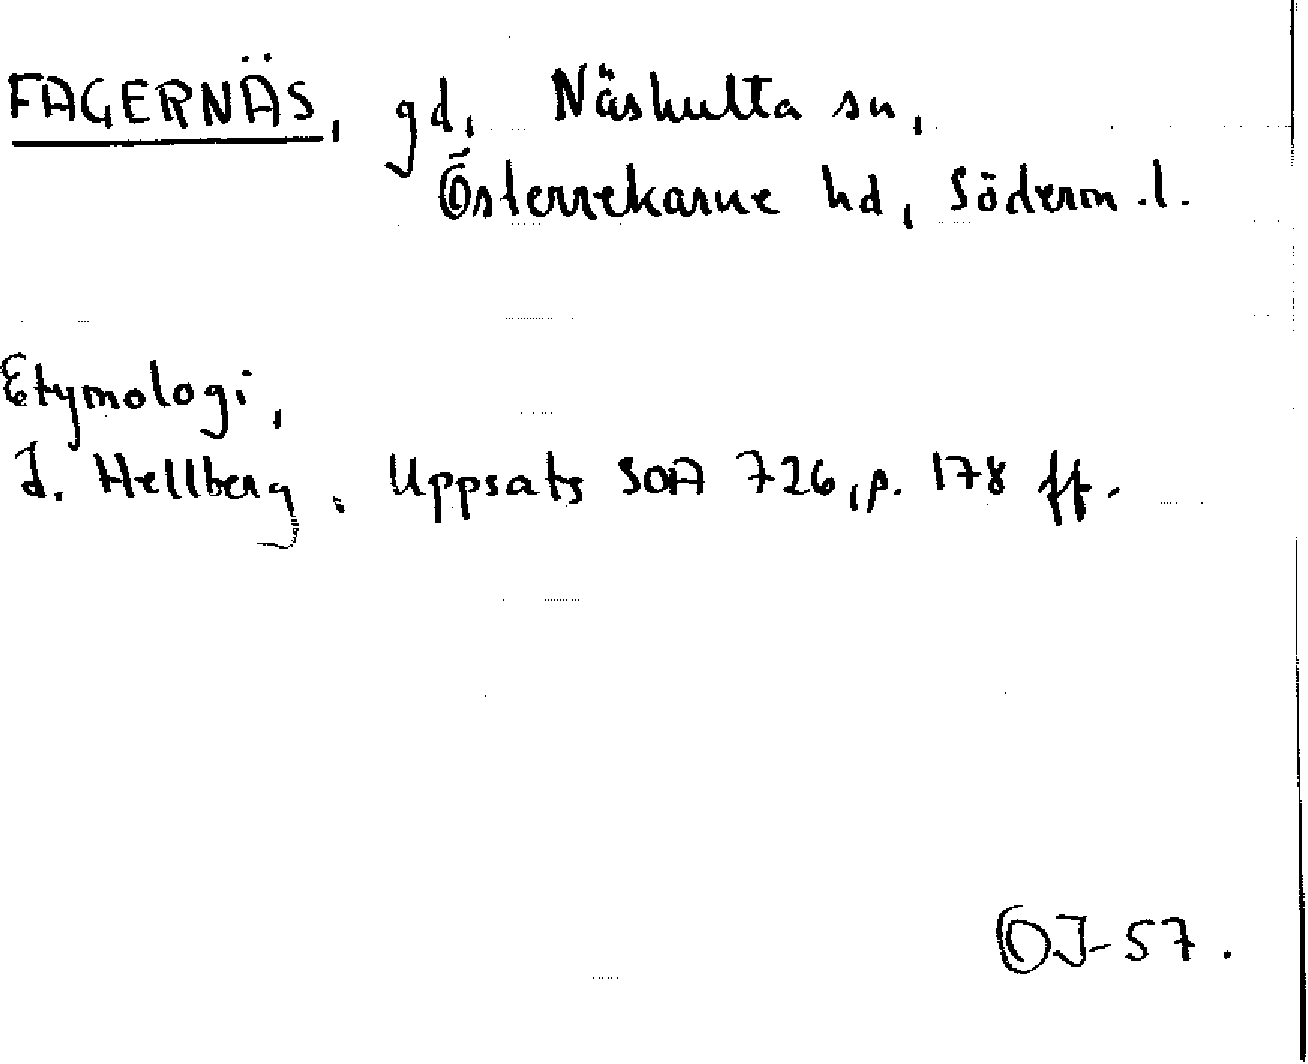 FAGERNÄS, gd, Näshulta sn,
Österrekarne hd, Söderm.l.
Etymologi,
L. Hellberg, Uppsats SOA 726, p. 178 ff.
OJ-57.